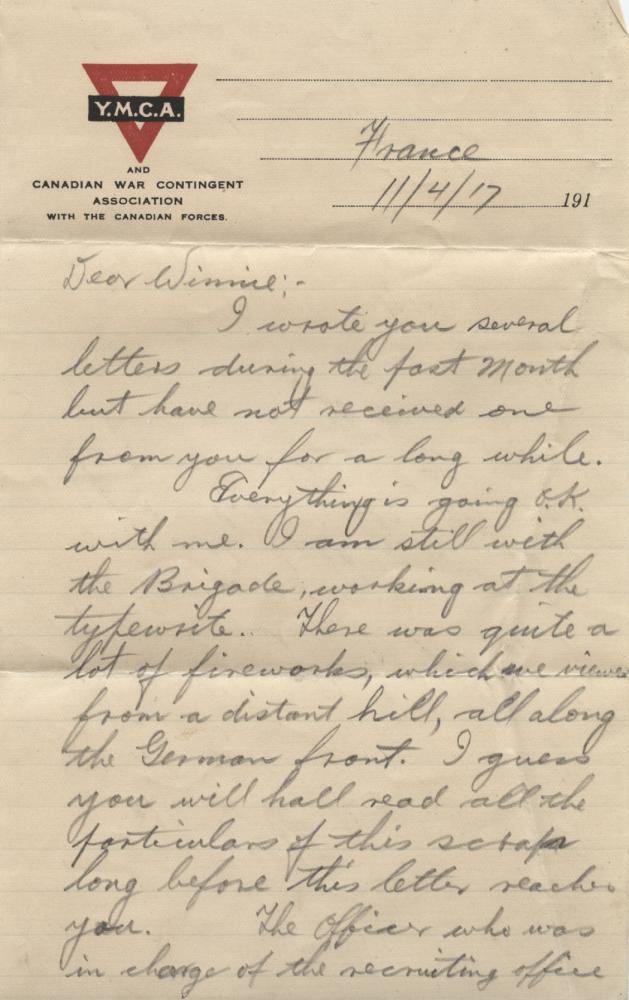 Y.M.C.A.
AND
CANADIAN WAR CONTINGENT
ASSOCIATION
WITH THE CANADIAN FORCES.
France
11/4/17 191
Dear Winnie:-
I wrote you several
letters during the past Month
but have not received one
from you for a long while.
Everything is going O.K.
with me. I am still with
the Brigade, working at the
typewrite.. There was quite a
lot of fireworks, which we viewed
from a distant hill, all along
the German front. I guess
you will hall read all the
particulars of this scrap
long before this letter reaches
you. The Officer who was
in charge of the recruiting office